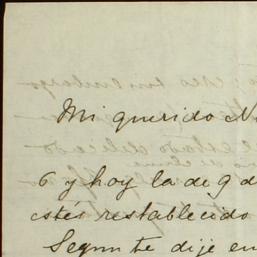 Mi querido N
6 y hoy la de 9 d
estés restablecido
Segun te dije en